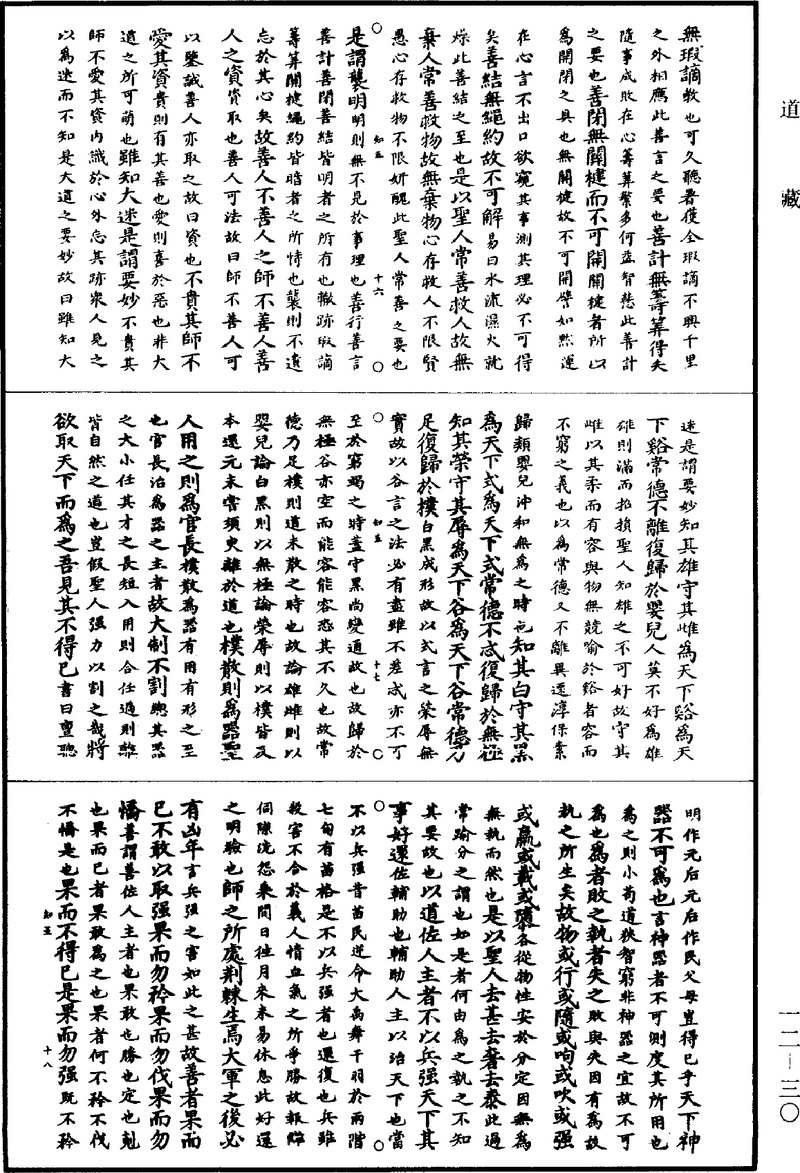 道藏
無瑕謫教也可久聽著僕全瑕謫不興千里
之外相應此善言之要也善計無籌算得失
隨事成敗在心籌算繁多何益智慧此善計
之要也善閉無關楗而不可開關楗者所以
為開閉之具也無關楗故不可開譬如默運
在心言不出口欲窺其事測其理必不可得
矣善結無繩約故不可解易曰水流濕火就
燥此善結之至也是以聖人常善救人故無
棄人常善救物故無棄物心存救人不限賢
愚心存救物不限妍醜此聖人常善之要也
知五 十六
是謂襲明明則無不見於事理也善行善言
善計善閉善結皆明者之所有也轍跡瑕謫
籌算關楗繩約皆暗者之所恃也襲則不遺
忘於其心矣故善人不善人之師不善人善
人之資資取也善人可法故曰師不善人可
以鑒誡善人亦取之故曰資也不貴其師不
愛其資貴則有其善也愛則喜於惡也非大
道之所可萌也雖知大迷是謂要妙不貴其
師不愛其資內誡於心外忘其跡衆人見之
以為迷而不知是大道之要妙故曰雖知大
迷是謂要妙知其雄守其雌為天下谿為天
下谿常德不離復歸於嬰兒人莫不好為雄
雄則滿而招損聖人知雄之不可好故守其
雌以其柔而有容與物無競喻於谿者容而
不窮之義也以為常德又不離異還淳保素
歸類嬰兒沖和無為之時也知其白守其黑
為天下式為天下式常德不忒復歸於無極
知其榮守其辱為天下谷為天下谷常德乃
足復歸於樸白黑成形故以式言之榮辱無
實故以谷言之法必有盡雖不差忒亦不可
知五 十七
至於窮竭之時蓋守黑尚變通故也故歸於
無極谷亦空而能容能容悉其不久也故常
德乃足樸則道未散之時也故論雄雌則以
嬰兒論白黑則以無極論榮辱則以樸皆反
本還元未嘗須臾離於道也樸散則為器聖
人用之則為官長樸散為器有用有形之至
也官長治為器之主者故大制不割總其器
之大小任其才之長短入用則合任適則離
皆自然之道也豈假聖人强力以割之哉將
欲取天下而為之吾見其不得已書曰亶聰
明作元后元后作民父母豈得已乎天下神
器不可為也言神器者不可測度其所用也
為之則小苟道狹智窮非神器之宜故不可
為也為者敗之執者失之敗與失因有為故
執之所生矣故物或行或隨或呴或吹或强
或羸或載或隳各從物性安於分定因無為
無執而然也是以聖人去甚去奢去泰此過
常踰分之謂也如是者何由為之執之不知
其要故也以道佐人主者不以兵强天下其
事好還佐輔助也輔助人主以治天下也當
不以兵强昔苗民逆命大禹舞干羽於兩階
七旬有苗格是不以兵强者也還復也兵雖
殺害不合於義人情血氣之所爭勝故報讎
伺隙流怨乘間日往月來未易休息此好還
之明驗也師之所處荆棘生焉大軍之後必
有凶年言兵强之害如此之甚故善者果而
已不敢以取强果而勿矜果而勿伐果而勿
憍善謂善佐人主者也果敢也勝也定也剋
也果而已者果敢為之也果者何不矜不伐
不憍是也果而不得已是果而勿强既不矜
知五 十八
一二-三〇